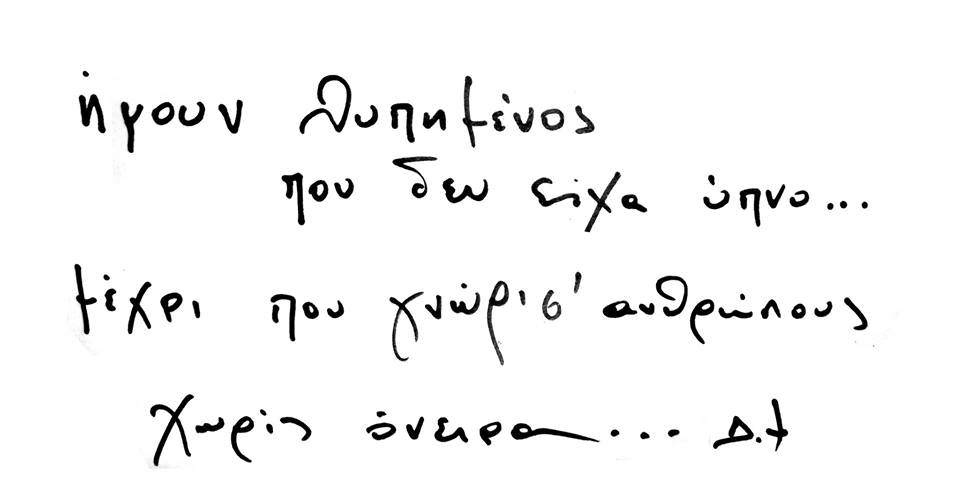 ήμουν λυπημένος
που δεν είχα ύπνο...
μέχρι που γνώρισ' ανθρώπους
χωρίς όνειρα... Δ.Ι